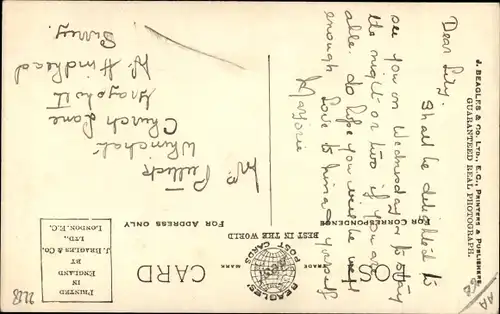 J. BEAGLES & Co. LTD., E.C., PRINTERS & PUBLISHERS.
GUARANTEED REAL PHOTOGRAPH.
POST CARD
BEAGLES' POST CARDS
TRADE MARK
BEST IN THE WORLD
FOR CORRESPONDENCE
FOR ADDRESS ONLY
PRINTED
IN
ENGLAND
BY
J. BEAGLES & Co.
LTD.
LONDON, E.C.
Dear Lily.
Shall be delighted to
see you on Wednesday or to stay
the night or two if you are
able. do hope you will be well
enough love to him and yourself
Marjorie
Church Lane
Grayshott
Nr Hindhead
Surrey.